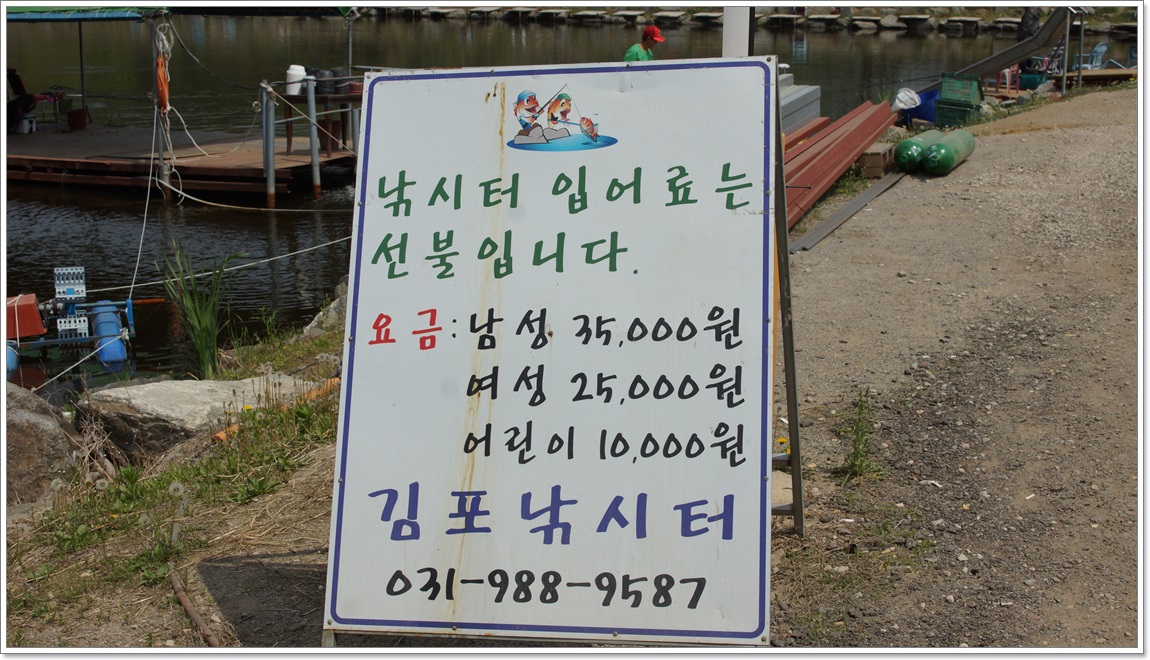 낚시터 입어료는
선불입니다.
요금: 남성 35,000원
여성 25,000원
어린이 10,000원
김포낚시터
031-988-9587